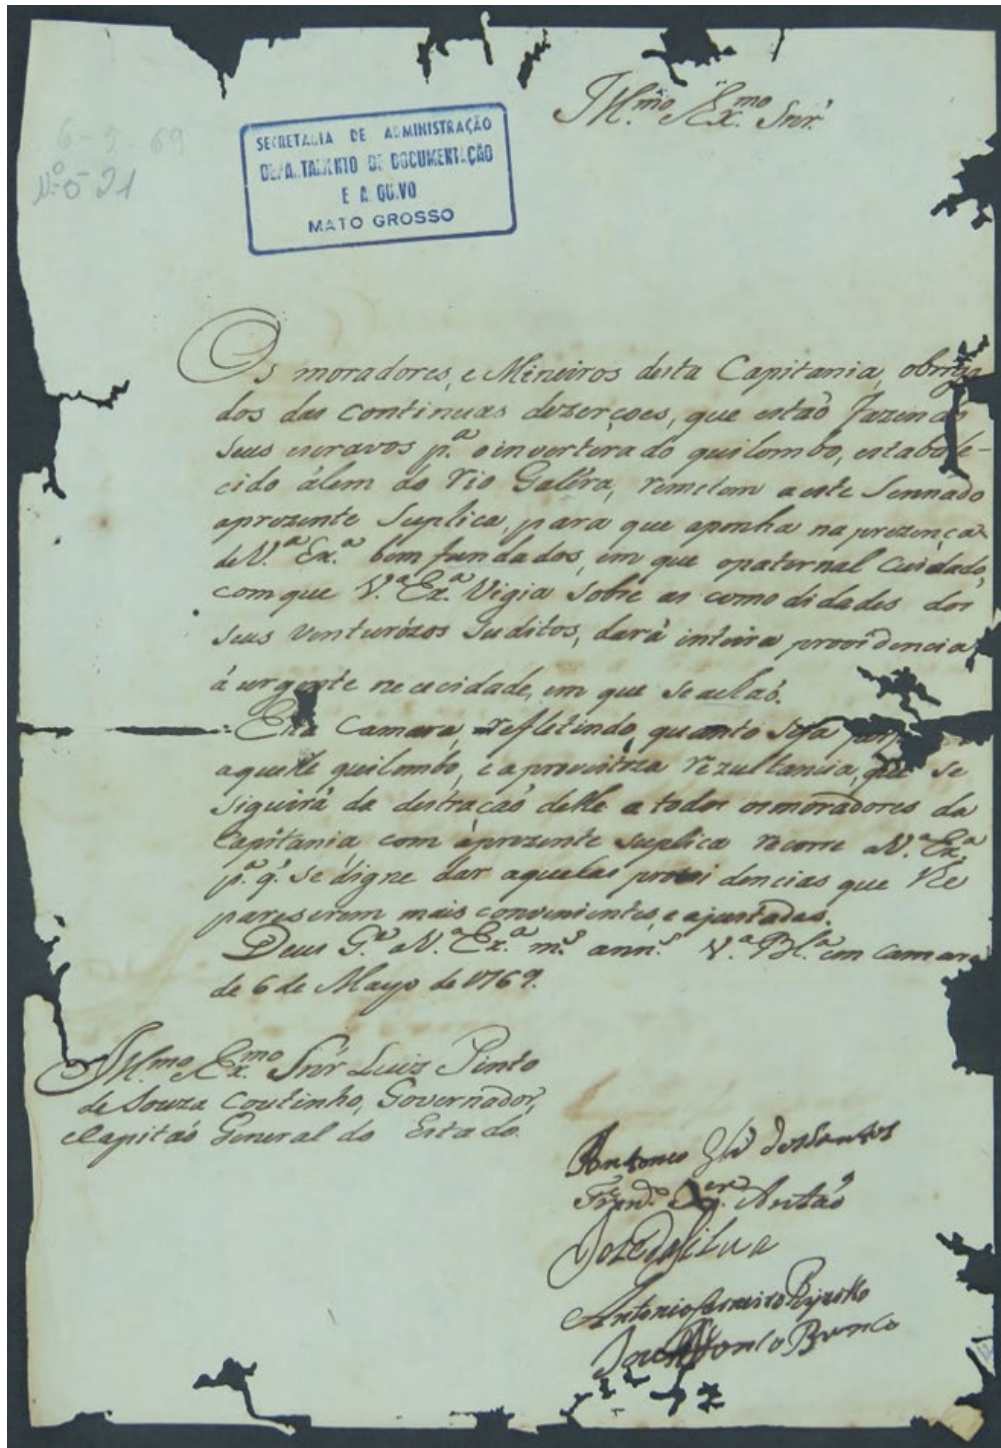 Ill.mo Ex.mo Snr.
6-5-69
Nº 021
SECRETARIA DE ADMINISTRAÇÃO
DEPARTAMENTO DE DOCUMENTAÇÃO
E ARQUIVO
MATO GROSSO
Os moradores, e Mineiros desta Capitania, obriga
dos das continuas dezerçoes, que estaõ fazendo
seus escravos p.ª o quilombo, estabele-
cido álem do rio Galéra, remetem a este Sennado
aprezente suplica, para que aponha na prezença
de V.ª Ex.ª bem fundados, em que opaternal Cuidado,
com que V.ª Ex.ª Vigia sobre as comodidades dos
seus venturózos suditos, dará inteira providencia
á urgente nececidade, em que se achaõ.
Esta Camara, refletindo, quanto seja
aquelle quilombo, e a proveitoza rezultancia, que se
siguirá da destraçaõ delle a todos osmoradores da
Capitania com áprezente suplica recorre aV.ª Ex.ª
p.ª q.' se digne dar aquelas providencias que lhe
pareserem mais convenientes, e ajustadas.
Deus G.e aV.ª Ex.ª m.s ann.s V.ª Bl.ª em Camara
de 6 de Mayo de 1769.
Ill.mo Ex.mo Snr Luiz Pinto
de Souza Coutinho, Governador,
e Capitaõ General do Estado.
Antonio dos Santos
Antaõ
Joze da Silva
Antonio Ferreira Peyxotto
Branco